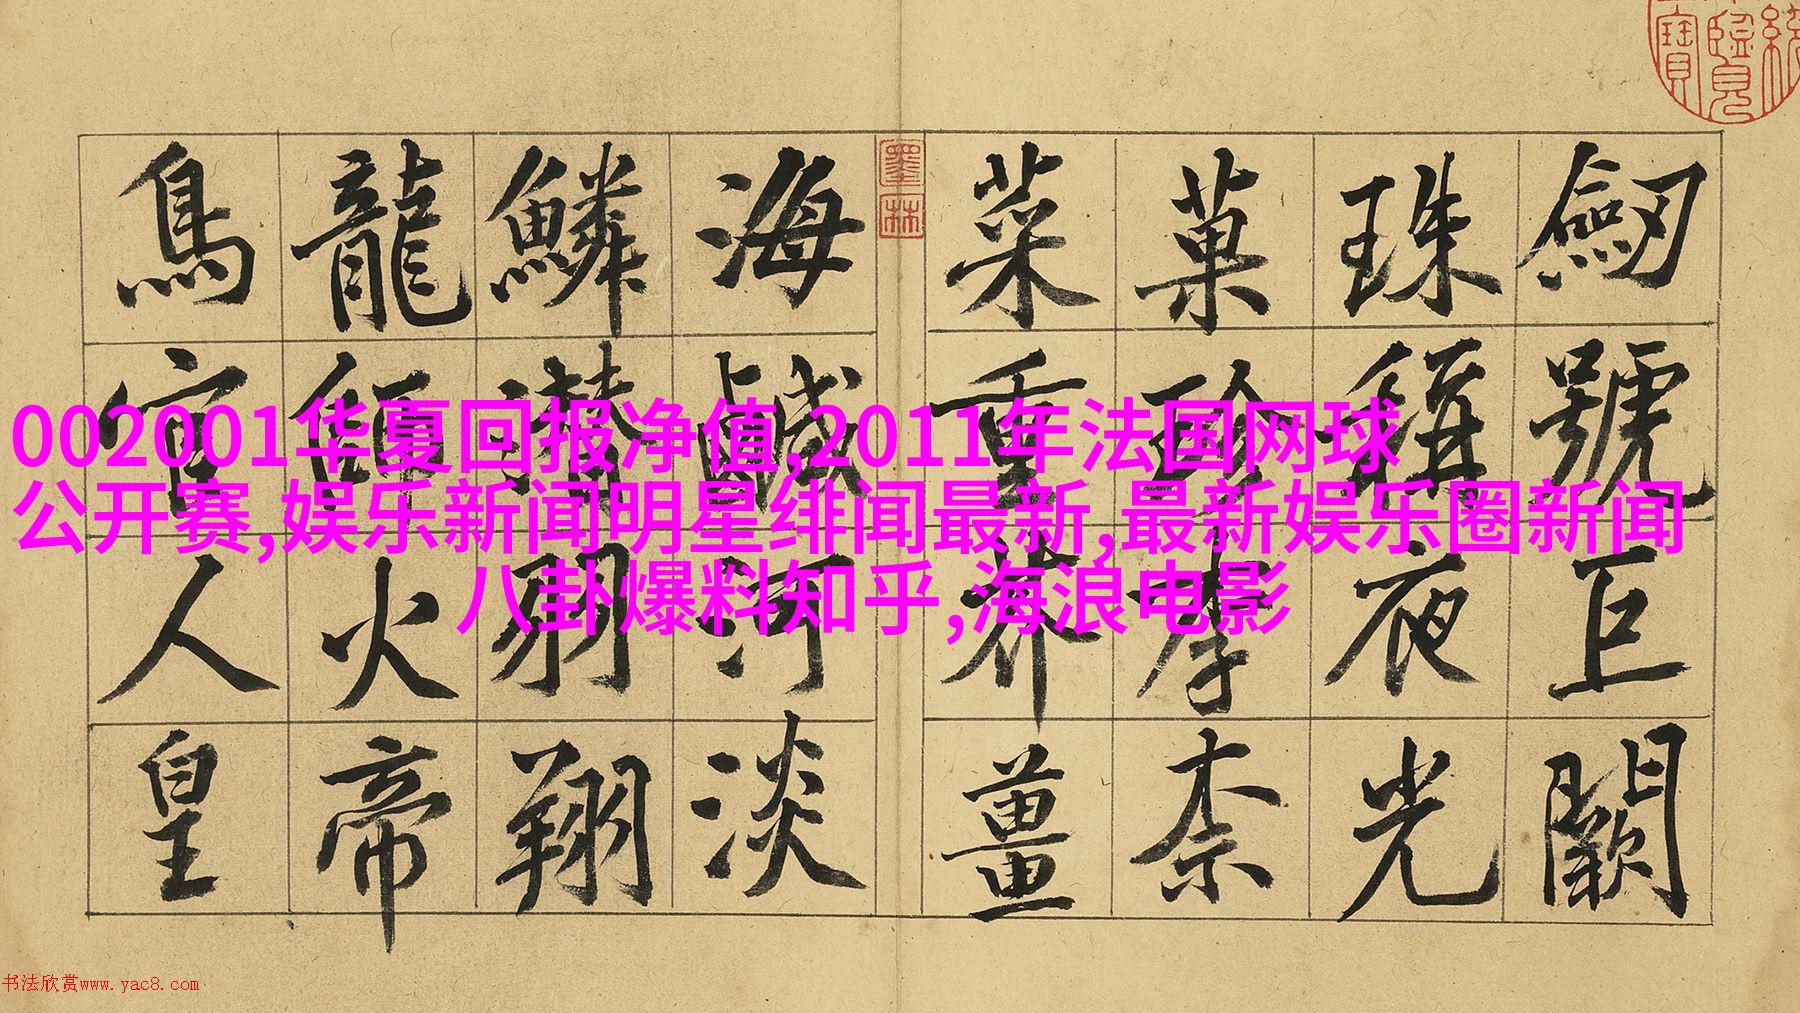 劒號巨闕
珠稱夜光
菓珍李柰
菜重芥薑
海鹹河淡
鱗潛羽翔
龍師火帝
鳥官人皇
墨林
002001华夏回报净值,2011年法国网球
公开赛,娱乐新闻明星绯闻最新,最新娱乐圈新闻
八卦爆料知乎,海浪电影
书法欣赏www.yac8.com